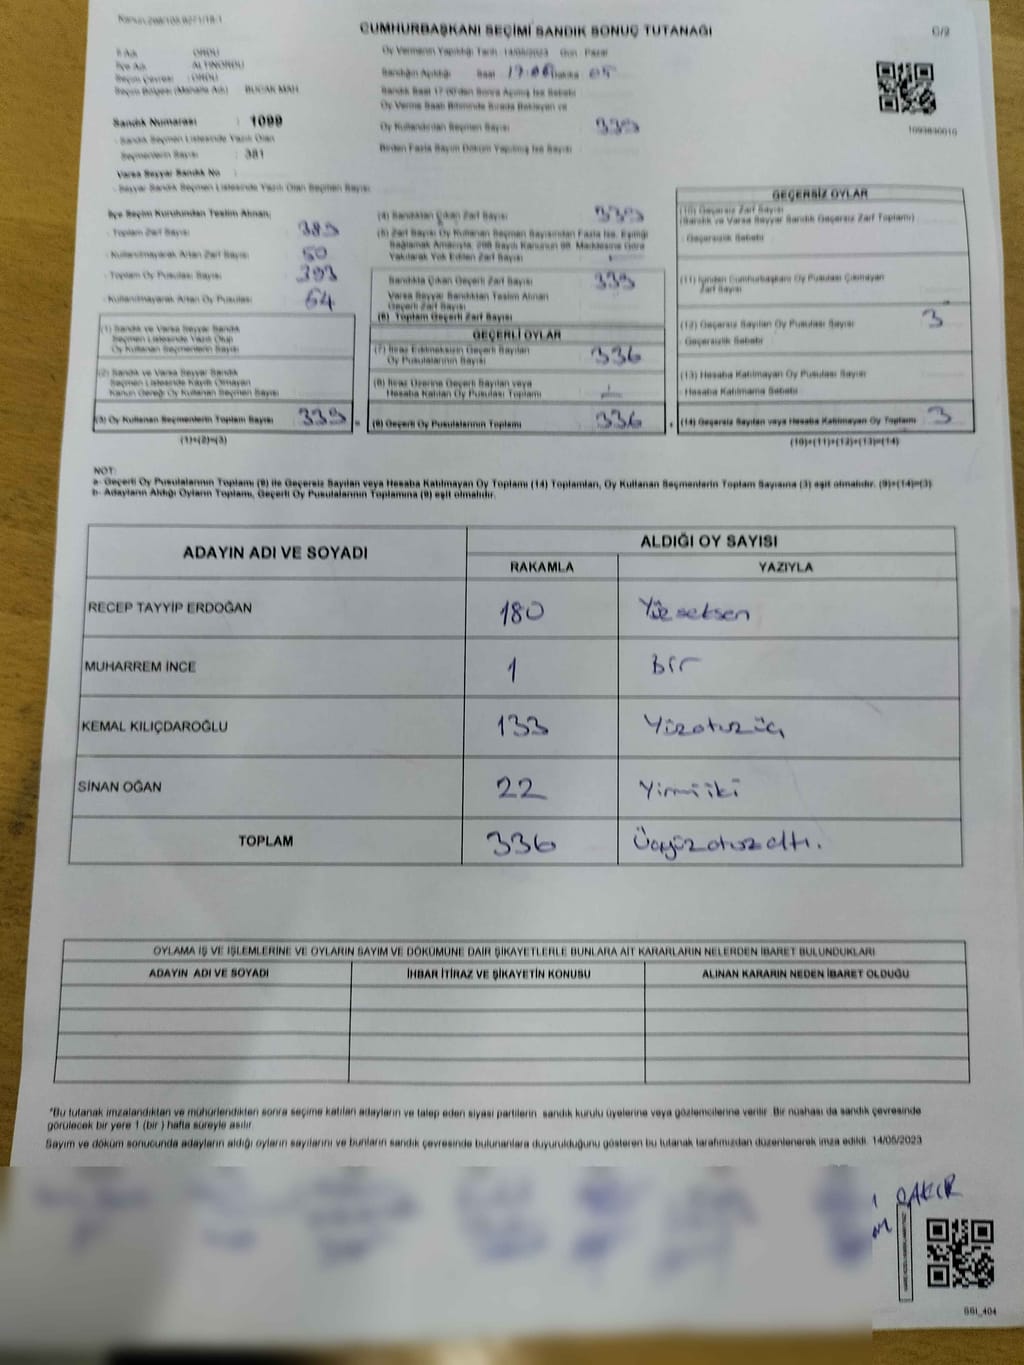 CUMHURBAŞKANI SEÇİMİ SANDIK SONUÇ TUTANAĞI
C/2
İl Adı : ORDU
İlçe Adı : ALTINORDU
Seçim Çevresi : ORDU
Seçim Bölgesi (Mahalle Adı) : BUCAK MAH.
Sandık Numarası : 1099
- Sandık Seçmen Listesinde Yazılı Olan
Seçmenlerin Sayısı : 381
Varsa Seyyar Sandık No :
- Seyyar Sandık Seçmen Listesinde Yazılı Olan Seçmen Sayısı:
Oy Vermenin Yapıldığı Tarih : 14/05/2023 Gün : Pazar
Sandığın Açıldığı Saat : Dakika : 05
Sandık Saat 17:00'den Sonra Açılmış İse Sebebi
Oy Verme Saati Bitiminde Sırada Bekleyen ve
Oy Kullandırılan Seçmen Sayısı : 339
Birden Fazla Sayım Döküm Yapılmış İse Sayısı :
İlçe Seçim Kurulundan Teslim Alınan;
- Toplam Zarf Sayısı : 389
- Kullanılmayarak Artan Zarf Sayısı : 50
- Toplam Oy Pusulası Sayısı : 393
- Kullanılmayarak Artan Oy Pusulası : 64
(1) Sandık ve Varsa Seyyar Sandık
Seçmen Listesinde Yazılı Olup
Oy Kullanan Seçmenlerin Sayısı
(2) Sandık ve Varsa Seyyar Sandık
Seçmen Listesinde Kayıtlı Olmayan
Kanun Gereği Oy Kullanan Seçmen Sayısı
(3) Oy Kullanan Seçmenlerin Toplam Sayısı : 339
(1)+(2)=(3)
(4) Sandıktan Çıkan Zarf Sayısı : 339
(5) Zarf Sayısı Oy Kullanan Seçmen Sayısından Fazla İse, Eşitliği
Sağlamak Amacıyla, 298 Sayılı Kanunun 98. Maddesine Göre
Yakılarak Yok Edilen Zarf Sayısı :
Sandıkta Çıkan Geçerli Zarf Sayısı : 339
Varsa Seyyar Sandıktan Teslim Alınan
Geçerli Zarf Sayısı
(6) Toplam Geçerli Zarf Sayısı
GEÇERLİ OYLAR
(7) İtiraz Edilmeksizin Geçerli Sayılan
Oy Pusulalarının Sayısı : 336
(8) İtiraz Üzerine Geçerli Sayılan veya
Hesaba Katılan Oy Pusulası Toplamı :
(9) Geçerli Oy Pusulalarının Toplamı : 336
GEÇERSİZ OYLAR
(10) Geçersiz Zarf Sayısı
(Sandık ve Varsa Seyyar Sandık Geçersiz Zarf Toplamı)
- Geçersizlik Sebebi
(11) İçinden Cumhurbaşkanı Oy Pusulası Çıkmayan
Zarf Sayısı
(12) Geçersiz Sayılan Oy Pusulası Sayısı : 3
Geçersizlik Sebebi
(13) Hesaba Katılmayan Oy Pusulası Sayısı
- Hesaba Katılmama Sebebi
(14) Geçersiz Sayılan veya Hesaba Katılmayan Oy Toplamı : 3
(10)+(11)+(12)+(13)=(14)
1093830010
NOT:
a- Geçerli Oy Pusulalarının Toplamı (9) ile Geçersiz Sayılan veya Hesaba Katılmayan Oy Toplamı (14) Toplamları, Oy Kullanan Seçmenlerin Toplam Sayısına (3) eşit olmalıdır. (9)+(14)=(3)
b- Adayların Aldığı Oyların Toplamı, Geçerli Oy Pusulalarının Toplamına (9) eşit olmalıdır.
ADAYIN ADI VE SOYADI
ALDIĞI OY SAYISI
RAKAMLA YAZIYLA
RECEP TAYYİP ERDOĞAN 180 Yüzseksen
MUHARREM İNCE 1 Bir
KEMAL KILIÇDAROĞLU 133 Yüzotuzüç
SİNAN OĞAN 22 Yirmiiki
TOPLAM 336 Üçyüzotuzaltı.
OYLAMA İŞ VE İŞLEMLERİNE VE OYLARIN SAYIM VE DÖKÜMÜNE DAİR ŞİKAYETLERLE BUNLARA AİT KARARLARIN NELERDEN İBARET BULUNDUKLARI
ADAYIN ADI VE SOYADI İHBAR İTİRAZ VE ŞİKAYETİN KONUSU ALINAN KARARIN NEDEN İBARET OLDUĞU
*Bu tutanak imzalandıktan ve mühürlendikten sonra seçime katılan adayların ve talep eden siyasi partilerin sandık kurulu üyelerine veya gözlemcilerine verilir. Bir nüshası da sandık çevresinde
görülecek bir yere 1 (bir) hafta süreyle asılır.
Sayım ve döküm sonucunda adayların aldığı oyların sayılarını ve bunların sandık çevresinde bulunanlara duyurulduğunu gösteren bu tutanak tarafımızdan düzenlenerek imza edildi. 14/05/2023
ÇAKIR
SSI_404